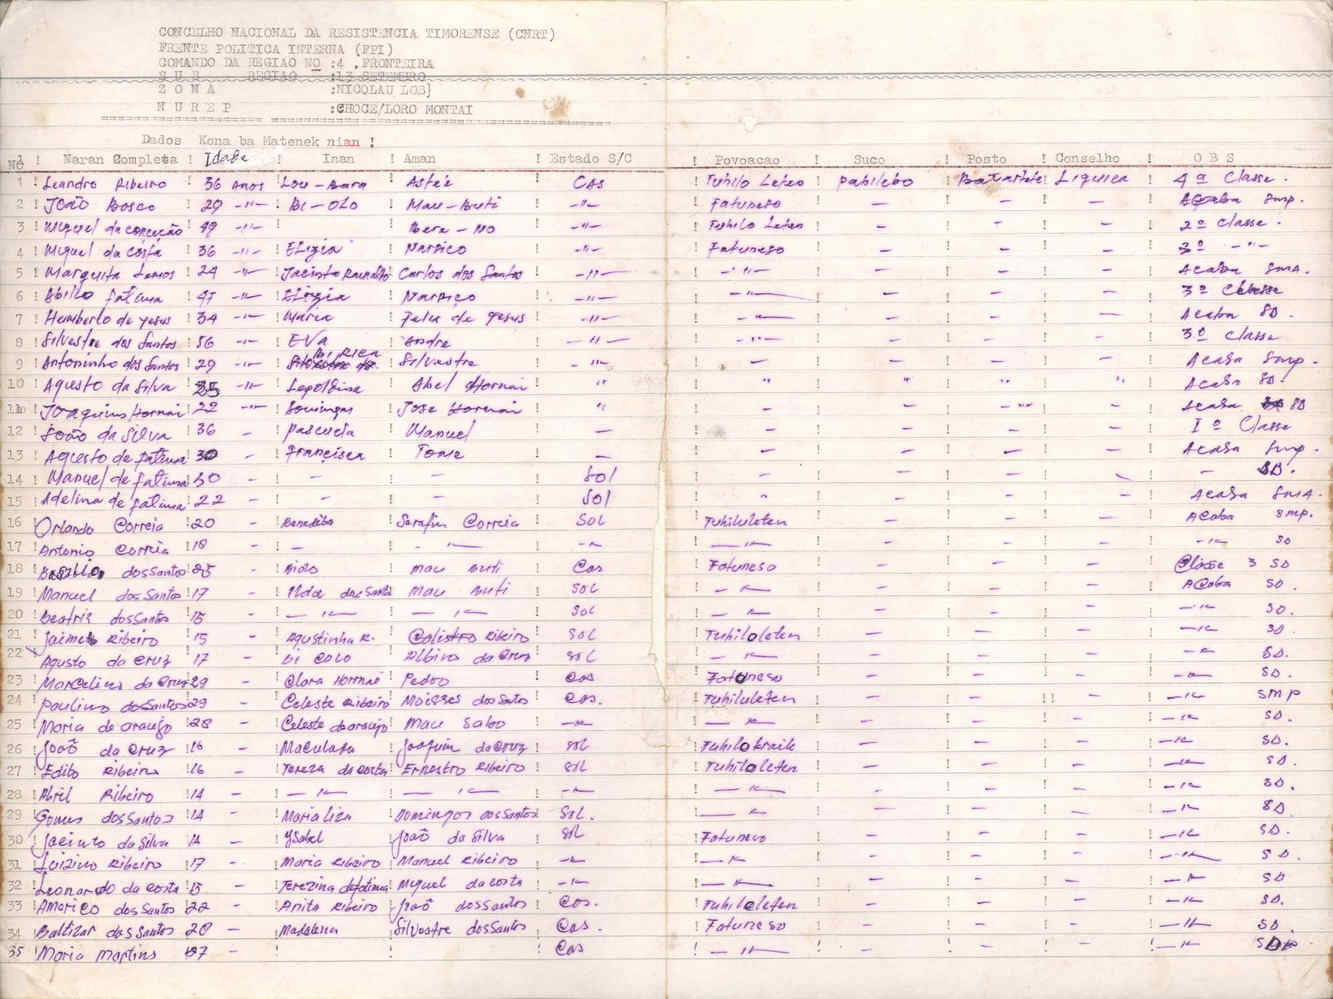 CONCELHO NACIONAL DA RESISTENCIA TIMORENSE (CNRT)
FRENTE POLITICA INTERNA (FPI)
COMANDO DA REGIAO NO :4 ,FRONTEIRA
S U R REGIAO :13 SETEMBRO
Z O N A :NICOLAU LOBJ
N U R E P :CHOCE/LORO MONTAI
Dados Kona ba Matenek nian !
NO ! Naran Completa ! Idade ! Inan ! Aman ! Estado S/C ! Povoacao ! Suco ! Posto ! Conselho ! O B S
1 ! Leandro Ribeiro ! 36 anos ! Lou-Bara ! Aste'e ! Cas ! Tuhilo Leten ! Pahilebo ! ! Liquica ! 4ª Classe.
2 ! João Bosco ! 29 -"- ! Bi-Olo ! Mau-Buti ! -"- ! Fatuneso ! - ! - ! - ! Acaba Smp.
3 ! Miguel da conceição ! 49 -"- ! ! Bere-No ! -"- ! Tuhilo Leten ! - ! - ! - ! 2º Classe.
4 ! Miguel da costa ! 36 -"- ! Eligia ! Narsico ! -"- ! Fatuneso ! - ! - ! - ! 3º -"-
5 ! Marquita Lemos ! 24 -"- ! Jacinta ! Carlos dos Santos ! -"- ! -"- ! - ! - ! - ! Acaba SMA.
6 ! Abilio fatima ! 47 -"- ! Eligia ! Narsico ! -"- ! -"- ! - ! - ! - ! 3º Classe
7 ! Humberto de yesus ! 34 -"- ! Maria ! Felix de yesus ! -"- ! -"- ! - ! - ! - ! Acaba SD.
8 ! Silvestre dos Santos ! 56 -"- ! EVa ! Andre ! -"- ! -"- ! - ! - ! - ! 3º Classe
9 ! Antoninho dos Santos ! 29 -"- ! Bi Rica ! Silvestre ! -"- ! - ! - ! - ! - ! Acaba Smp.
10 ! Agusto da Silva ! 35 -"- ! Lepoldina ! Abel Hornai ! " ! " ! " ! " ! " ! Acaba SD.
11 ! Joaquim Hornai ! 22 -"- ! Domingas ! Jose Hornai ! " ! - ! - ! -"- ! - ! Acaba SD
12 ! João da Silva ! 36 - ! Pascuela ! Manuel ! - ! - ! - ! - ! - ! Iº Classe
13 ! Agusto de fatima ! 30 - ! Francisca ! Tome ! - ! - ! - ! - ! - ! Acaba Smp.
14 ! Manuel de fatima ! 30 - ! - ! - ! Sol ! - ! - ! - ! - ! - SD.
15 ! Adelina de fatima ! 22 - ! - ! - ! Sol ! - ! - ! - ! - ! Acaba SMA.
16 ! Orlando Correia ! 20 - ! ! Serafin Correia ! Sol ! Tuhiluleten ! - ! - ! - ! Acaba Smp.
17 ! Antonio Correia ! 18 - ! - ! -"- ! -"- ! -"- ! - ! - ! - ! -"- SD
18 ! Basilio dosSantos ! 25 - ! ! mau Buti ! Cas ! Fatuneso ! - ! - ! - ! Classe 3 SD
19 ! Manuel dosSantos ! 17 - ! Ilda dosSantos ! Mau Buti ! Sol ! -"- ! - ! - ! - ! Acaba SD.
20 ! Beatris dosSantos ! 15 - ! -"- ! -"- ! Sol ! -"- ! - ! - ! - ! -"- SD.
21 ! Jaime Ribeiro ! 15 - ! Agustinha R. ! Calistro Ribeiro ! Sol ! Tuhiloleten ! - ! - ! - ! -"- SD.
22 ! Agusto da Cruz ! 17 - ! Bi Colo ! Albino da Cruz ! Sol ! -"- ! - ! - ! - ! -"- SD.
23 ! Marcelino da Cruz ! 29 - ! Clara Hornai ! Pedro ! Cas ! Fatuneso ! - ! - ! - ! -"- SD.
24 ! Paulino dosSantos ! 29 - ! Celeste Ribeiro ! Moisses dosSantos ! Cas. ! Tuhiluleten ! - ! - !! - ! -"- SMP
25 ! Maria de araujo ! 28 - ! Celeste de araujo ! Mau Sabo ! -"- ! -"- ! - ! - ! - ! -"- SD.
26 ! João da Cruz ! 16 - ! Maculada ! Joaquim daCruz ! Sol ! Tuhilokraik ! - ! - ! - ! -"- SD.
27 ! Edito Ribeiro ! 16 - ! Tereza da costa ! Ernestro Ribeiro ! Sol ! Tuhiloleten ! - ! - ! - ! -"- SD.
28 ! Abril Ribeiro ! 14 - ! -"- ! -"- ! -"- ! -"- ! - ! - ! - ! -"- SD.
29 ! Gomes dosSantos ! 14 - ! Marializa ! Domingos dosSantos ! Sol. ! -"- ! - ! - ! - ! -"- SD
30 ! Jacinto da Silva ! 14 - ! Ysabel ! João da Silva ! Sol ! Fatuneso ! - ! - ! - ! -"- SD.
31 ! Luizino Ribeiro ! 17 - ! Maria Ribeiro ! Manuel Ribeiro ! -"- ! -"- ! - ! - ! - ! -"- SD.
32 ! Leonardo da costa ! 15 - ! Terezina defatima ! Miguel da costa ! -"- ! -"- ! - ! - ! - ! -"- SD
33 ! Americo dosSantos ! 22 - ! Anita Ribeiro ! João dosSantos ! Cas. ! Tuhiloleten ! - ! - ! - ! -"- SD.
34 ! Baltizar dosSantos ! 28 - ! Madalena ! Silvestre dosSantos ! Cas. ! Fatuneso ! - ! - ! - ! -"- SD
35 ! Maria Martins ! 37 - ! ! ! Cas ! -"- ! - ! - ! - ! -"-